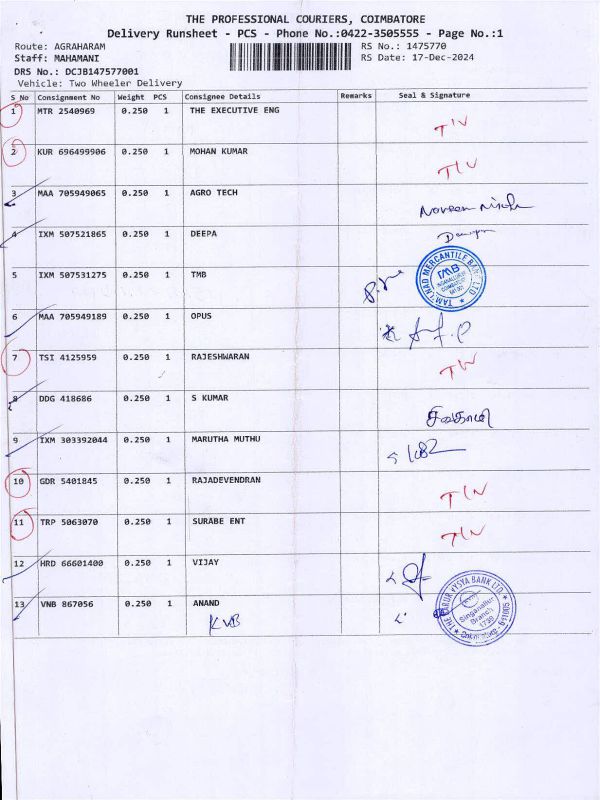 THE PROFESSIONAL COURIERS, COIMBATORE
Delivery Runsheet - PCS - Phone No.:0422-3505555 - Page No.:1
Route: AGRAHARAM RS No.: 1475770
Staff: MAHAMANI RS Date: 17-Dec-2024
DRS No.: DCJB147577001
Vehicle: Two Wheeler Delivery
S No Consignment No Weight PCS Consignee Details Remarks Seal & Signature
1 MTR 2540969 0.250 1 THE EXECUTIVE ENG
2 KUR 696499906 0.250 1 MOHAN KUMAR
3 MAA 705949065 0.250 1 AGRO TECH
Naveen
4 IXM 507521865 0.250 1 DEEPA
5 IXM 507531275 0.250 1 TMB
TAMILNAD MERCANTILE BANK LTD
TMB
6 MAA 705949189 0.250 1 OPUS
7 TSI 4125959 0.250 1 RAJESHWARAN
8 DDG 418686 0.250 1 S KUMAR
சிவகாமி
9 IXM 303392044 0.250 1 MARUTHA MUTHU
10 GDR 5401845 0.250 1 RAJADEVENDRAN
11 TRP 5063070 0.250 1 SURABE ENT
12 HRD 66601400 0.250 1 VIJAY
13 VNB 867056 0.250 1 ANAND
KVB
THE KARUR VYSYA BANK LTD.
Singanallur
Branch
1739
Coimbatore - 641005